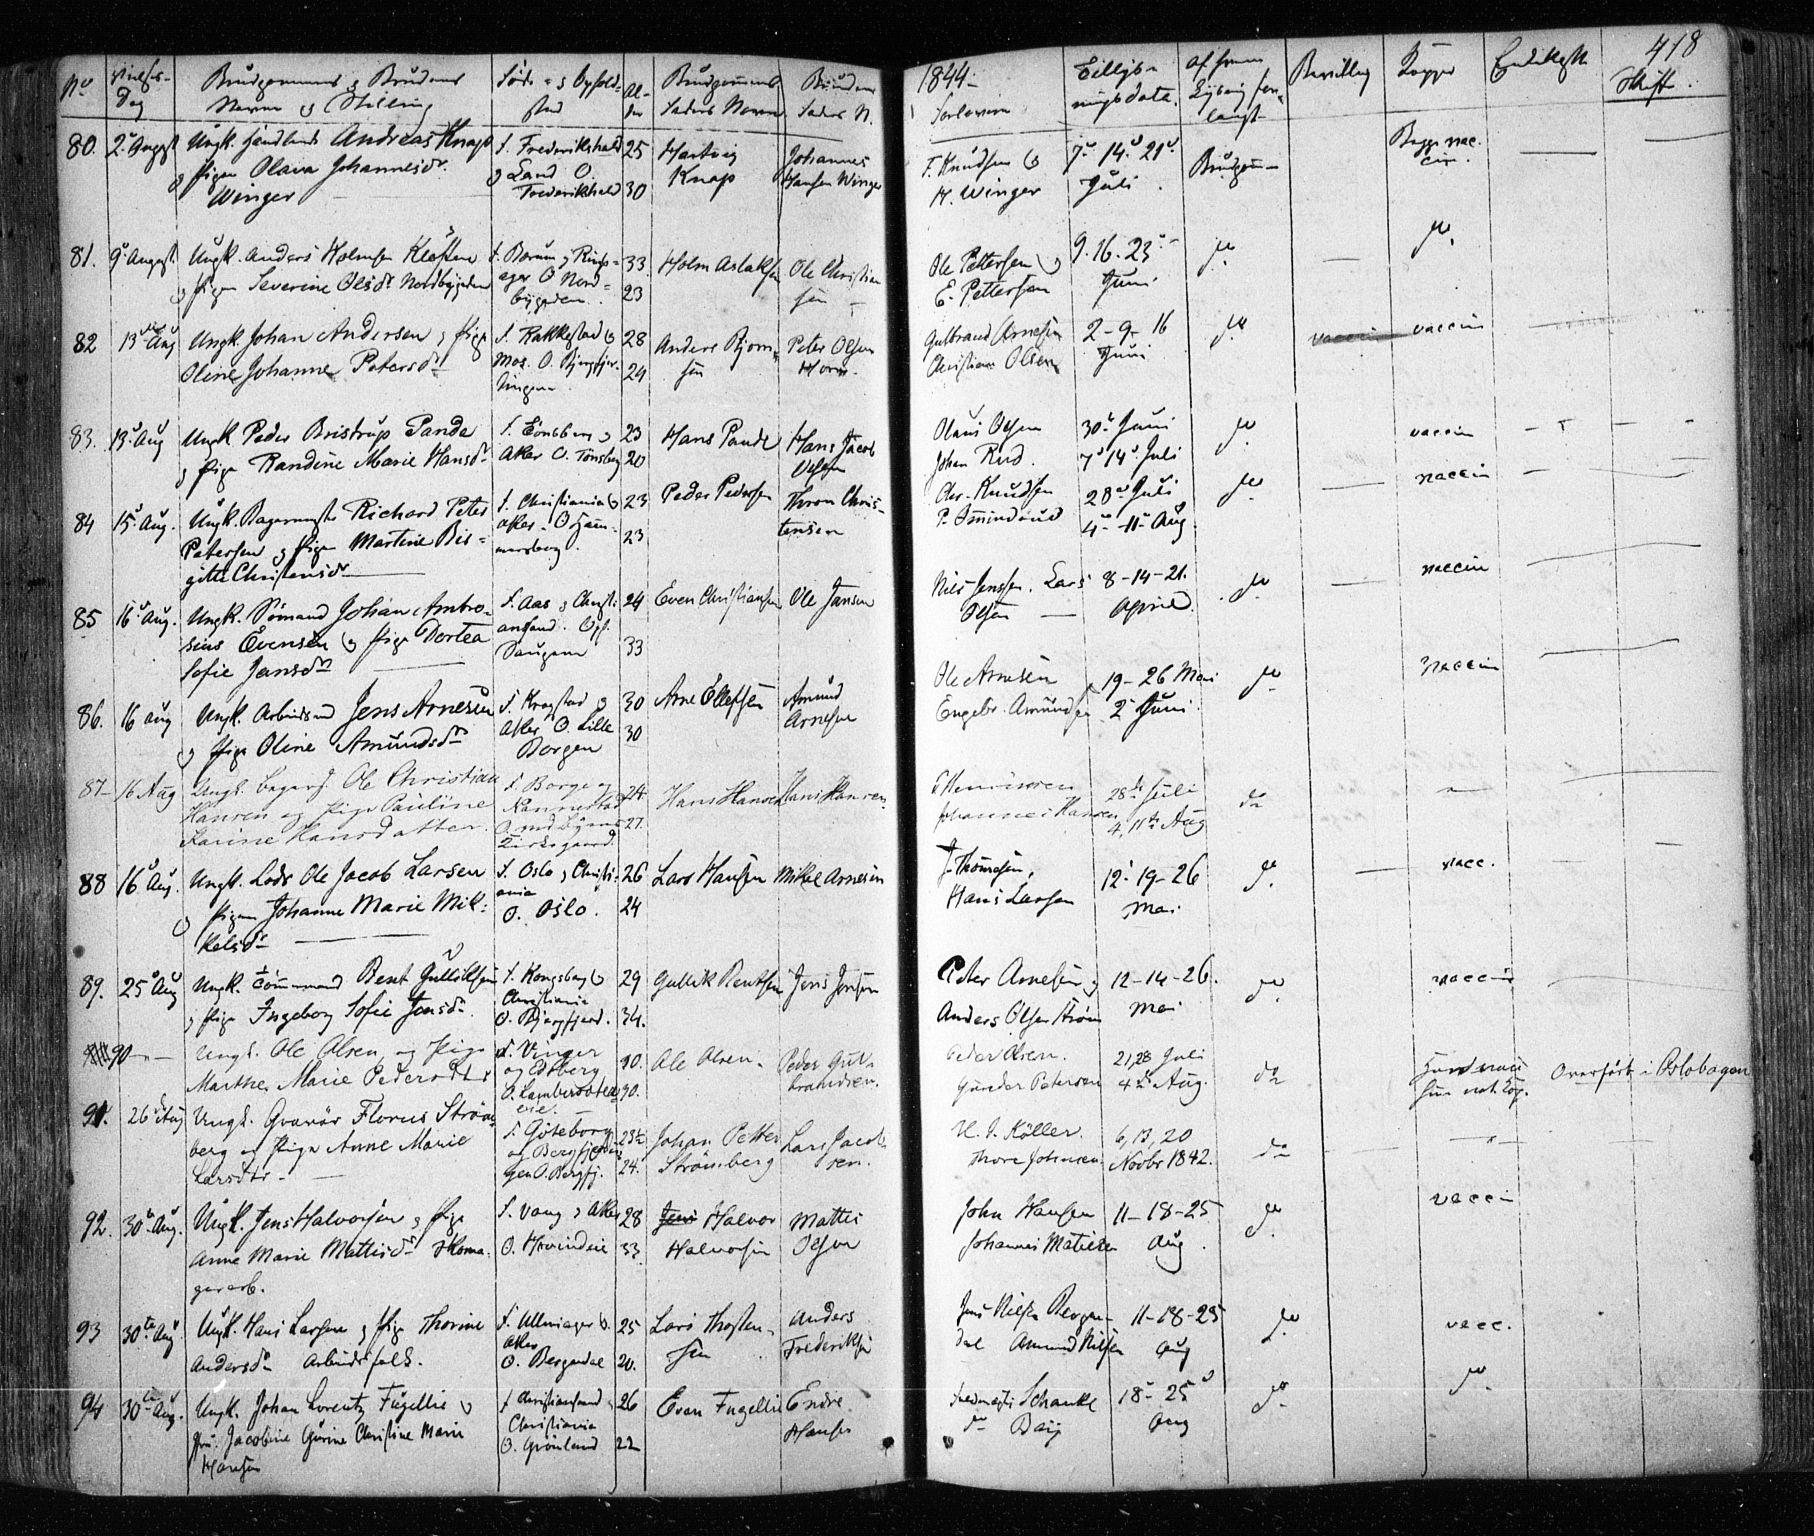 418
1844
No Vielses- Dag Brudgommens og Brudens Navn og Stilling Føde- og Ophold- sted Al- der Brudgommens Faders Navn Brudens Faders N. Forlovere Tillys- ningsdata. Af hvem Lysning for- langt Bevilling Kopper Skifte.
80. 2. August Ungk. Andreas Knap
og Pigen Olava Johannesdr.
Winger
f. Frederikshald
og Land O.
Frederikshald
25
30
Hartvig
Knap
Johannes
Hansen Winger
F. Knudsen og
H. Winger
7. 14. 21.
Juli
Brudgom-
Begge vac-
cin.
81. 9. August. Ungk. Anders Holmsen Kloften
og Pigen Severine Olsdr Nordbygden
f. Bærum og Rings-
ager O Nord-
bygden.
33.
23
Holm Aslaksen
Ole Christian
sen
Ole Pettersen og
E. Pettersen
9. 16. 23
Juni
do
do
82 13 Aug Ungk Johan Andersen og Pige
Oline Johanne Petersdr
f. Rakkestad og
Mos. O. Bjergfjer-
dingen
28
24
Anders Bjørn-
sen
Peter Olsen
Horn.
Gulbrand Arnesen
Christian Olsen
2-9-16
Juni
do
vaccin
83. 13. Aug Ungk Peder Bristrup Pande
og Pige Randine Marie Hansdr
f. Tønsberg og
Aker O. Tønsberg
23
20
Hans Pande
Hans Jacob
Olsen
Olaus Olsen
Johan Rud.
30. Juni
7. 14. Juli
do
vaccin
84 15. Aug. Ungk. Bagermester Richard Peter
Petersen og Pigen Martine Bir-
gitte Christensdr
f. Christiania og
Aker. O Ham-
mersborg.
23
23
Peder Pedersen
Thron Chris-
tensen
Chr. Knudsen
28. Juli
4. 11. Aug.
do
vaccin
85 16. Aug. Ungk. Sømand Johan Ambro-
sius Evensen og Pige Dortea
Sofie Jansdr
f. Aas og Christi-
ansand.
Saugene
24
33
Even Christiansen
Ole Jansen
Nils Jensen. Lars
Olsen
8-14-21.
April.
do
vaccin
86. 16 Aug Ungk. Arbeidsmd Jens Arnesen
og Pige Oline Amundsdr
f. Kragstad og
Aker O. Lille
Borgen
30
30
Arne Ellefsen
Amund
Arnesen
Ole Arnesen
Engebr. Amundsen
19-26 Mai
2 Juni
do
vaccin
87- 16 Aug Ungk. Bagers. Ole Christian
Hansen og Pige Pauline
Karine Hansdatter.
f. Borge og
Nannestad
24.
27.
Hans Hansen
Hans Hansen
Johannes Hansen
28de Juli
4, 11te Aug
do
88 16. Aug. Ungk. Lods Ole Jacob Larsen
og Pigen Johanne Marie Mik-
kelsdr
f. Oslo og Christi-
ania
O. Oslo.
26
24
Lars Hansen
Mikkel Arnesen
J. Thomesen,
Hans Larsen
12. 19-26
Mai
do
vacc.
89. 25. Aug Ungk. Tømmermd Bent Gulliksen
og Pige Ingeborg Sofie Jensdr.
f. Kongsberg og
Christiania
O. Bjergfjerd.
29
34.
Gullik Bentsen
Jens Jensen
Peter Arnesen og
Anders Olsen Strøm
12-14-26.
Mai
do
vaccin
90 Ungk. Ole Olsen og Pige
Marthe Marie Pedersdtr
f. Vinger
og Edsberg
O. Lambersæter-
eie.
30.
30.
Ole Olsen.
Peder Gul-
brandsen.
Peder Olsen.
Gunder Petersen
21, 28 Juli
4de Aug.
do
Overført i Oslobogen
91. 26 Aug Ungk. Florus Strøm-
berg og Pige Anne Marie
Larsdtr.
f. Göteborg
og Bergfjerdin-
gen O. Bergfj.
23
24.
Johan Petter
Strömberg
Lars Jacob-
sen.
H. J. Köller.
Thore Johnsen
6, 13, 20
Novbr 1842.
do
92. 30. Aug. Ungk. Jens Halvorsen og Pige
Anne Marie Mattisdr Skoma-
gerarb.
f. Vang og Aker
O. Hovindeie
28
33.
Halvor
Halvorsen
Mattis
Olsen
John Hansen
Johannes Matisen
11-18-25
Aug.
do
vaccin
93 30te Aug. Ungk. Hans Larsen og Pige Thorine
Andersdr Arbeidsfolk.
f. Ullensager og
Aker
O. Bergsdal
25
20.
Lars Thosten-
sen
Anders
Frederiksen
Jens Nilsen Bergen-
dal Amund Nilsen
11-18-25
Aug
do
vacc.
94 30te Aug. Ungk. Johan Lorentz Fugellie og
Jfru. Jacobine Gurine Christine Marie
Hansen
f Christiansund
Christiania
O. Grønland
26
22
Even Fugellie
Endre
Hansen
Schanke
do Baij
18- 25
Aug
do
do